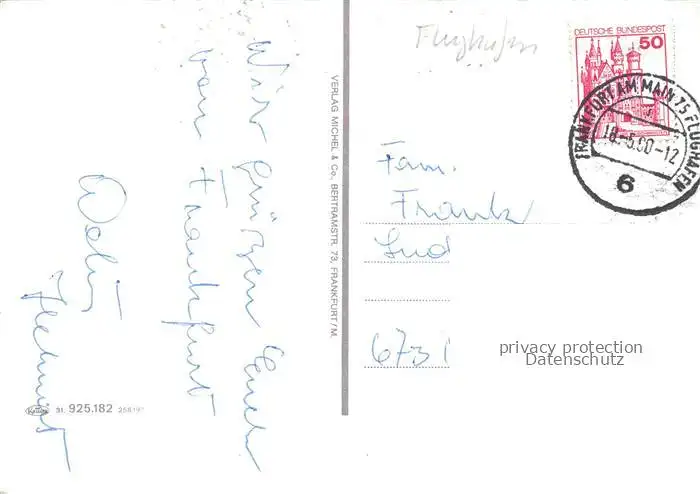 Flughafen
DEUTSCHE BUNDESPOST
50
FRANKFURT AM MAIN 75 FLUGHAFEN
18.-5.00-12
6
Wir grüßen Euch
von Frankfurt
Helmut
VERLAG MICHEL & Co., BERTRAMSTR. 73, FRANKFURT/M.
Fam.
Frank
Lud
6731
privacy protection
Datenschutz
31. 925.182